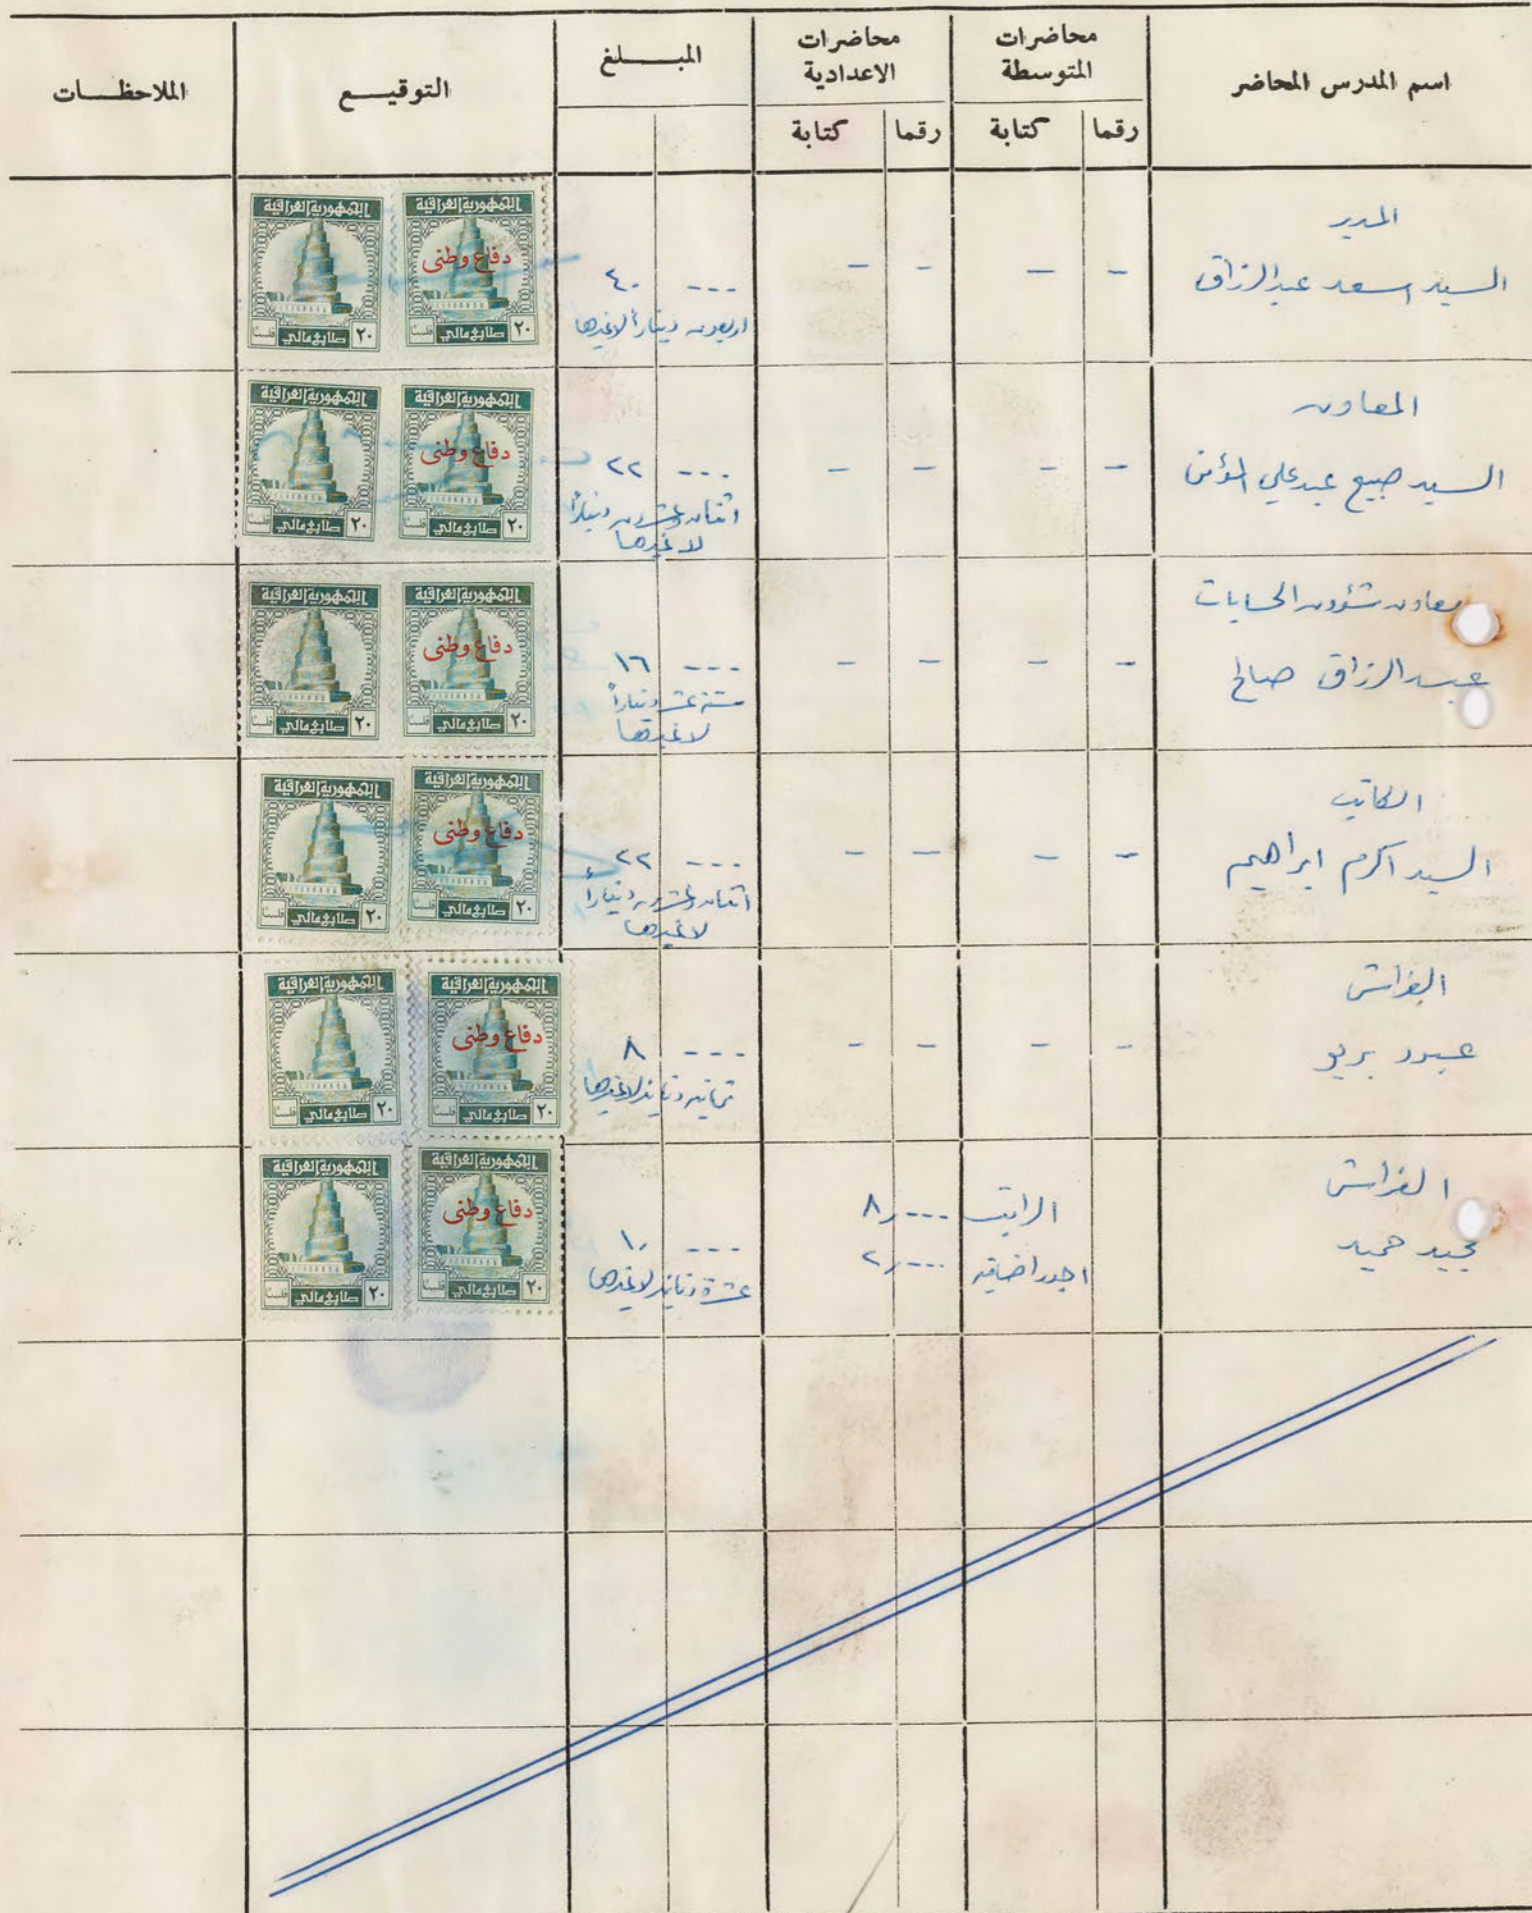 اسم المدرس المحاضر
محاضرات المتوسطة
محاضرات الاعدادية
المبـــلغ
التوقيـــع
الملاحظـــات
رقما
كتابة
رقما
كتابة
المدير
السيد اسعد عبدالرزاق
- - - -
--- ٤٠
اربعون ديناراً لاغيرها
الجمهورية العراقية
دفاع وطني
٢٠ طابع مالي فلسًا
الجمهورية العراقية
٢٠ طابع مالي فلسًا
المعاون
السيد صبيح عبدعلي المؤمن
- - - -
--- ٢٢
اثنان وعشرون ديناراً
لاغيرها
الجمهورية العراقية
دفاع وطني
٢٠ طابع مالي فلسًا
الجمهورية العراقية
٢٠ طابع مالي فلسًا
معاون شؤون الحسابات
عبدالرزاق صالح
- - - -
--- ١٦
ستة عشر ديناراً
لاغيرها
الجمهورية العراقية
دفاع وطني
٢٠ طابع مالي فلسًا
الجمهورية العراقية
٢٠ طابع مالي فلسًا
الكاتب
السيد اكرم ابراهيم
- - - -
--- ٢٢
اثنان وعشرون ديناراً
لاغيرها
الجمهورية العراقية
دفاع وطني
٢٠ طابع مالي فلسًا
الجمهورية العراقية
٢٠ طابع مالي فلسًا
الفراش
عبود
- - - -
--- ٨
ثمانية دنانير لاغيرها
الجمهورية العراقية
دفاع وطني
٢٠ طابع مالي فلسًا
الجمهورية العراقية
٢٠ طابع مالي فلسًا
الفراش
مجيد حميد
الراتب ٨,---
اجور اضافية ٢,---
--- ١٠
عشرة دنانير لاغيرها
الجمهورية العراقية
دفاع وطني
٢٠ طابع مالي فلسًا
الجمهورية العراقية
٢٠ طابع مالي فلسًا